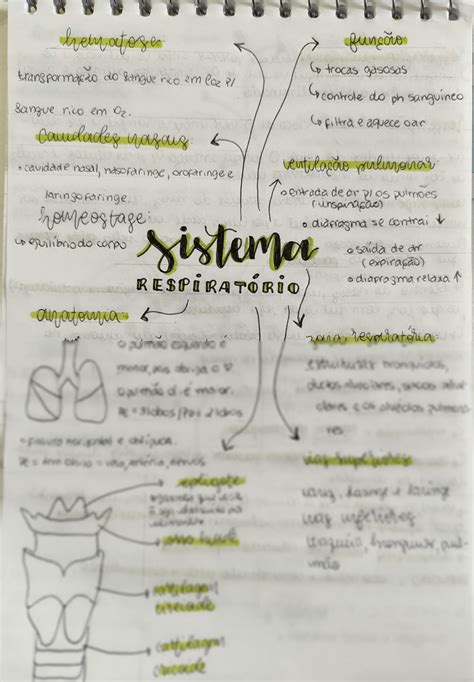 hematose:
transformação do sangue rico em CO2 p/
sangue rico em O2.
Cavidades nasais:
• cavidade nasal, nasofaringe, orofaringe e
laringofaringe.
homeostase:
↳ equilíbrio do corpo
função
↳ trocas gasosas
↳ controle do ph sanguíneo
↳ filtra e aquece o ar
ventilação pulmonar:
• entrada de ar p/ os pulmões
(inspiração)
• diafragma se contrai ↓
• saída de ar
(expiração)
• diafragma relaxa ↑
sistema
RESPIRATÓRIO
anatomia:
o pulmão esquerdo é
menor, pois abriga o ♡
o pulmão d. é maior.
3 lobos / 2 lobos
• fissura horizontal e oblíqua.
artéria, nervos
zona respiratória
estruturas
ductos alveolares, sacos alveo
lares e os alvéolos pulmona
res
vias superiores
nariz, faringe e laringe
vias inferiores
traqueia, brônquios, pul-
mão
epiglote
cartilagem
cartilagem
cricoide